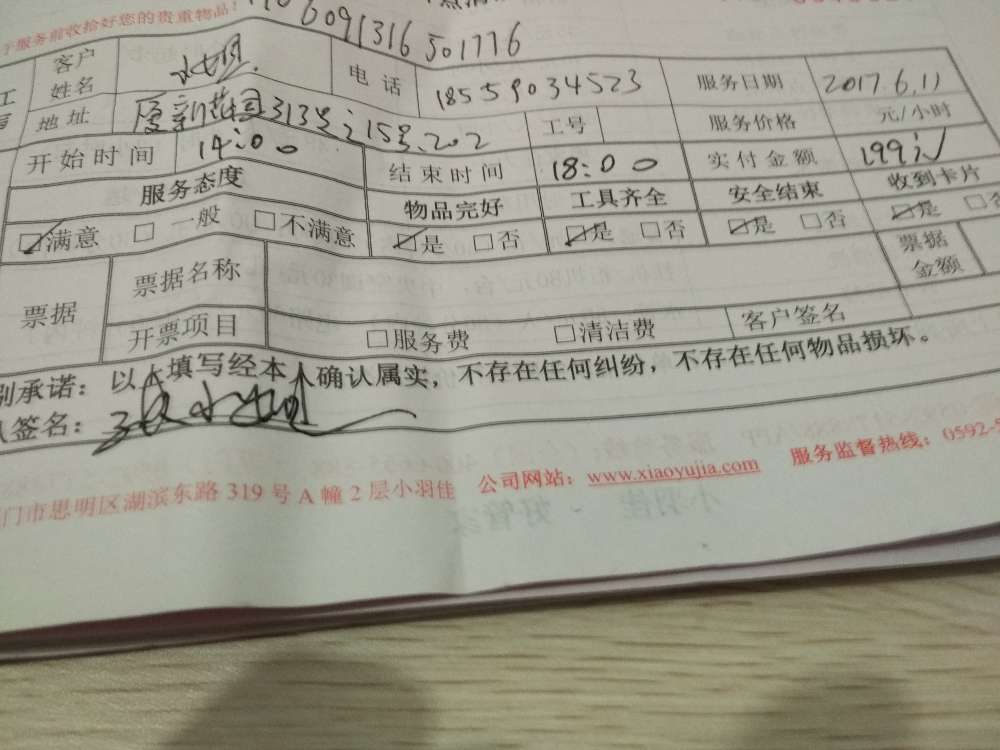 于服务前收拾好您的贵重物品!
6091316501776
客户姓名 电话 18559034523 服务日期 2017.6.11
地址 厦新花园313号之15号202 工号 服务价格 元/小时
开始时间 14:00 结束时间 18:00 实付金额 199元
服务态度 物品完好 工具齐全 安全结束 收到卡片
☑满意 □一般 □不满意 ☑是 □否 ☑是 □否 ☑是 □否 ☑是 □否
票据 票据名称 票据金额
开票项目 □服务费 □清洁费 客户签名
别承诺：以上填写经本人确认属实，不存在任何纠纷，不存在任何物品损坏。
签名：
门市思明区湖滨东路 319 号 A 幢 2 层小羽佳 公司网站：www.xiaoyujia.com 服务监督热线：0592-5